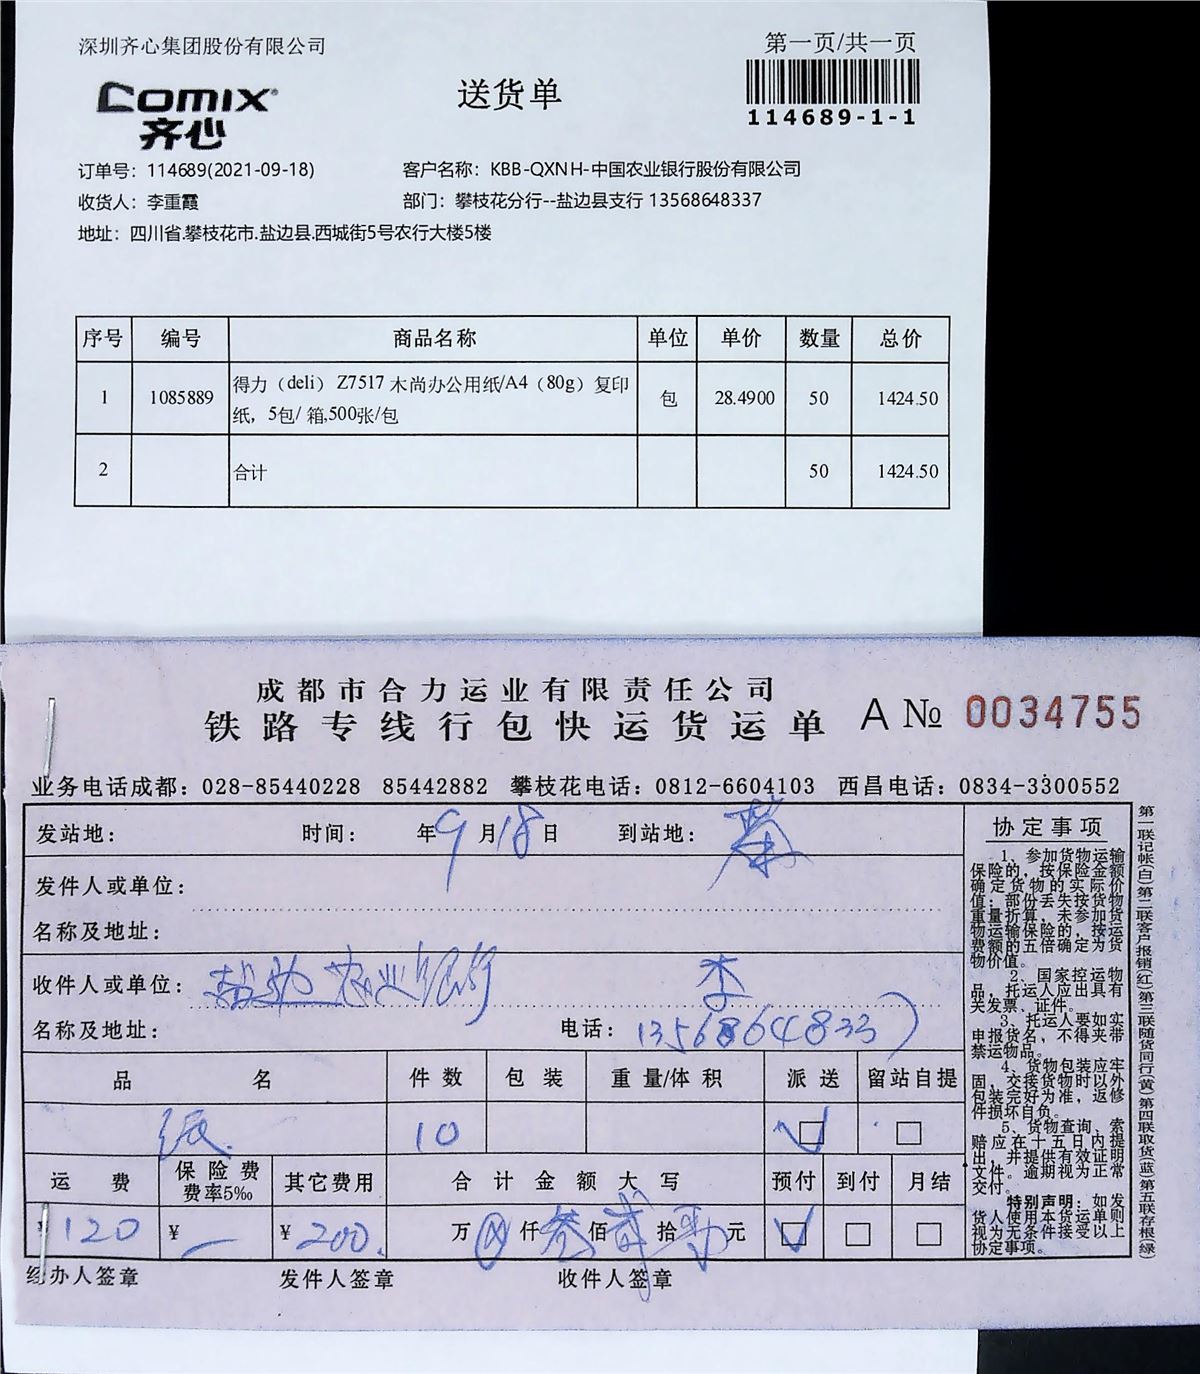 深圳齐心集团股份有限公司
第一页/共一页
comix
齐心
送货单
114689-1-1
订单号：114689(2021-09-18)
客户名称：KBB-QXNH-中国农业银行股份有限公司
收货人：李重霞
部门：攀枝花分行--盐边县支行 13568648337
地址：四川省.攀枝花市.盐边县.西城街5号农行大楼5楼
序号 编号 商品名称 单位 单价 数量 总价
1 1085889 得力（deli）Z7517 木尚办公用纸/A4（80g）复印
纸，5包/ 箱,500张/包 包 28.4900 50 1424.50
2 合计 50 1424.50
成都市合力运业有限责任公司
铁路专线行包快运货运单 A № 0034755
业务电话成都：028-85440228 85442882 攀枝花电话：0812-6604103 西昌电话：0834-3300552
发站地： 时间： 年9月18日 到站地：
发件人或单位：
名称及地址：
收件人或单位： 农业银行 李
名称及地址： 电话：13568648337
品名 件数 包装 重量/体积 派送 留站自提
纸 10
运费 保险费 其它费用 合计金额大写 预付 到付 月结
费率5‰
¥120 ¥ ¥200. 万 仟叁佰贰拾 元
经办人签章 发件人签章 收件人签章
协定事项
1、参加货物运输
保险的，按保险金额
确定货物的实际价
值；部份丢失按货物
重量折算，未参加货
物运输保险的，按运
费额的五倍确定为货
物价值。
2、国家控运物
品，托运人应出具有
关发票、证件。
3、托运人要如实
申报货名，不得夹带
禁运物品。
4、货物包装应牢
固，交接货物时以外
包装完好为准，返修
件损坏自负。
5、货物查询、索
赔应在十五日内提
出，并提供有效证明
文件。逾期视为正常
交付。
特别声明：如发
货人使用本货运单则
视为无条件接受以上
协定事项。
第一联记帐(白)第二联客户报销(红)第三联随货同行(黄)第四联取货(蓝)第五联存根(绿)